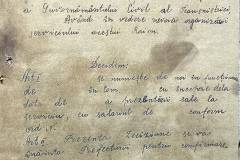 a Guvernământului Civil al Transnistriei
Având în vedere noua organizare
serviciului acestui Raion.
Decidem:
Art. I se numește de noi în funcțiune
de în com. cu începere dela
data de a prezentării sale la
serviciu, cu salariul de conform
ord. N.
Art. II Prezenta Deciziune se va
înainta Prefecturii pentru confirmare